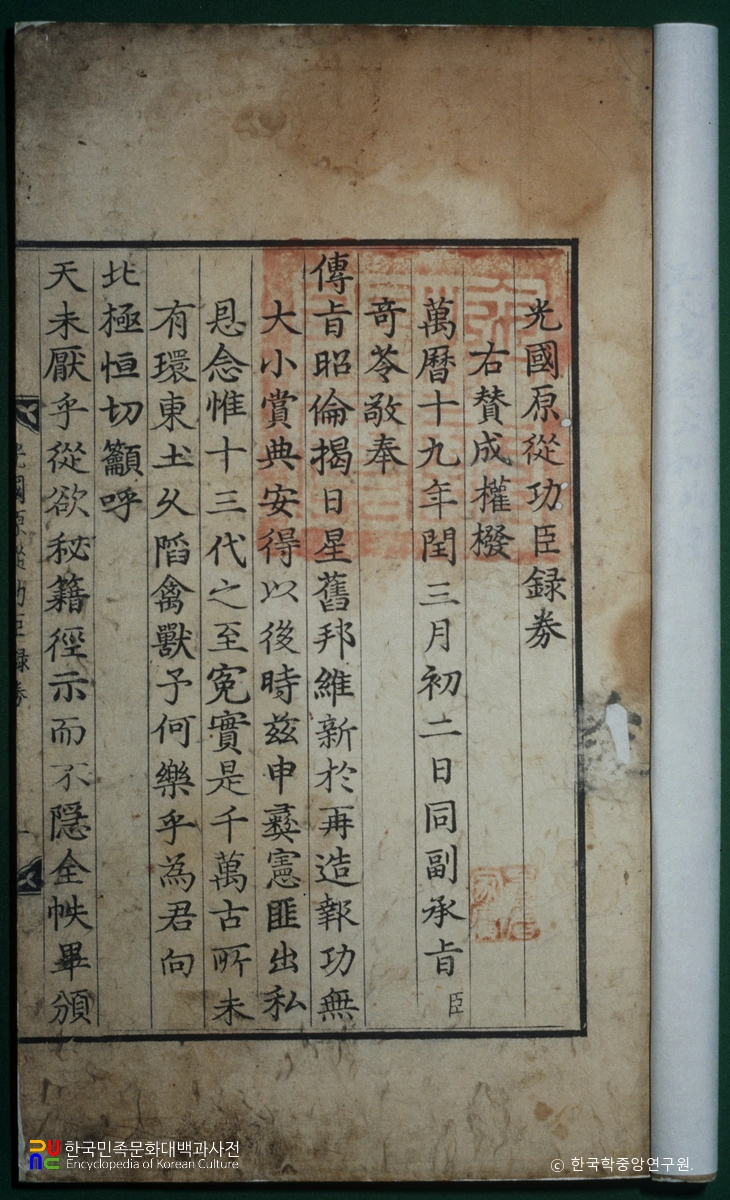 光國原從功臣録券
右賛成權橃
萬曆十九年閏三月初二日同副承㫖臣
竒苓敬奉
傳㫖昭倫揭日星舊邦維新於再造報功無
大小賞典安得以後時兹申彛憲匪出私
恩念惟十三代之至寃實是千萬古所未
有環東𡈽乆陷禽獸予何樂乎為君向
北極恒切籲呼
天未厭乎從欲秘籍徑示而不隠全帙畢頒
光國原從功臣録券
한국민족문화대백과사전
Encyclopedia of Korean Culture
ⓒ 한국학중앙연구원.